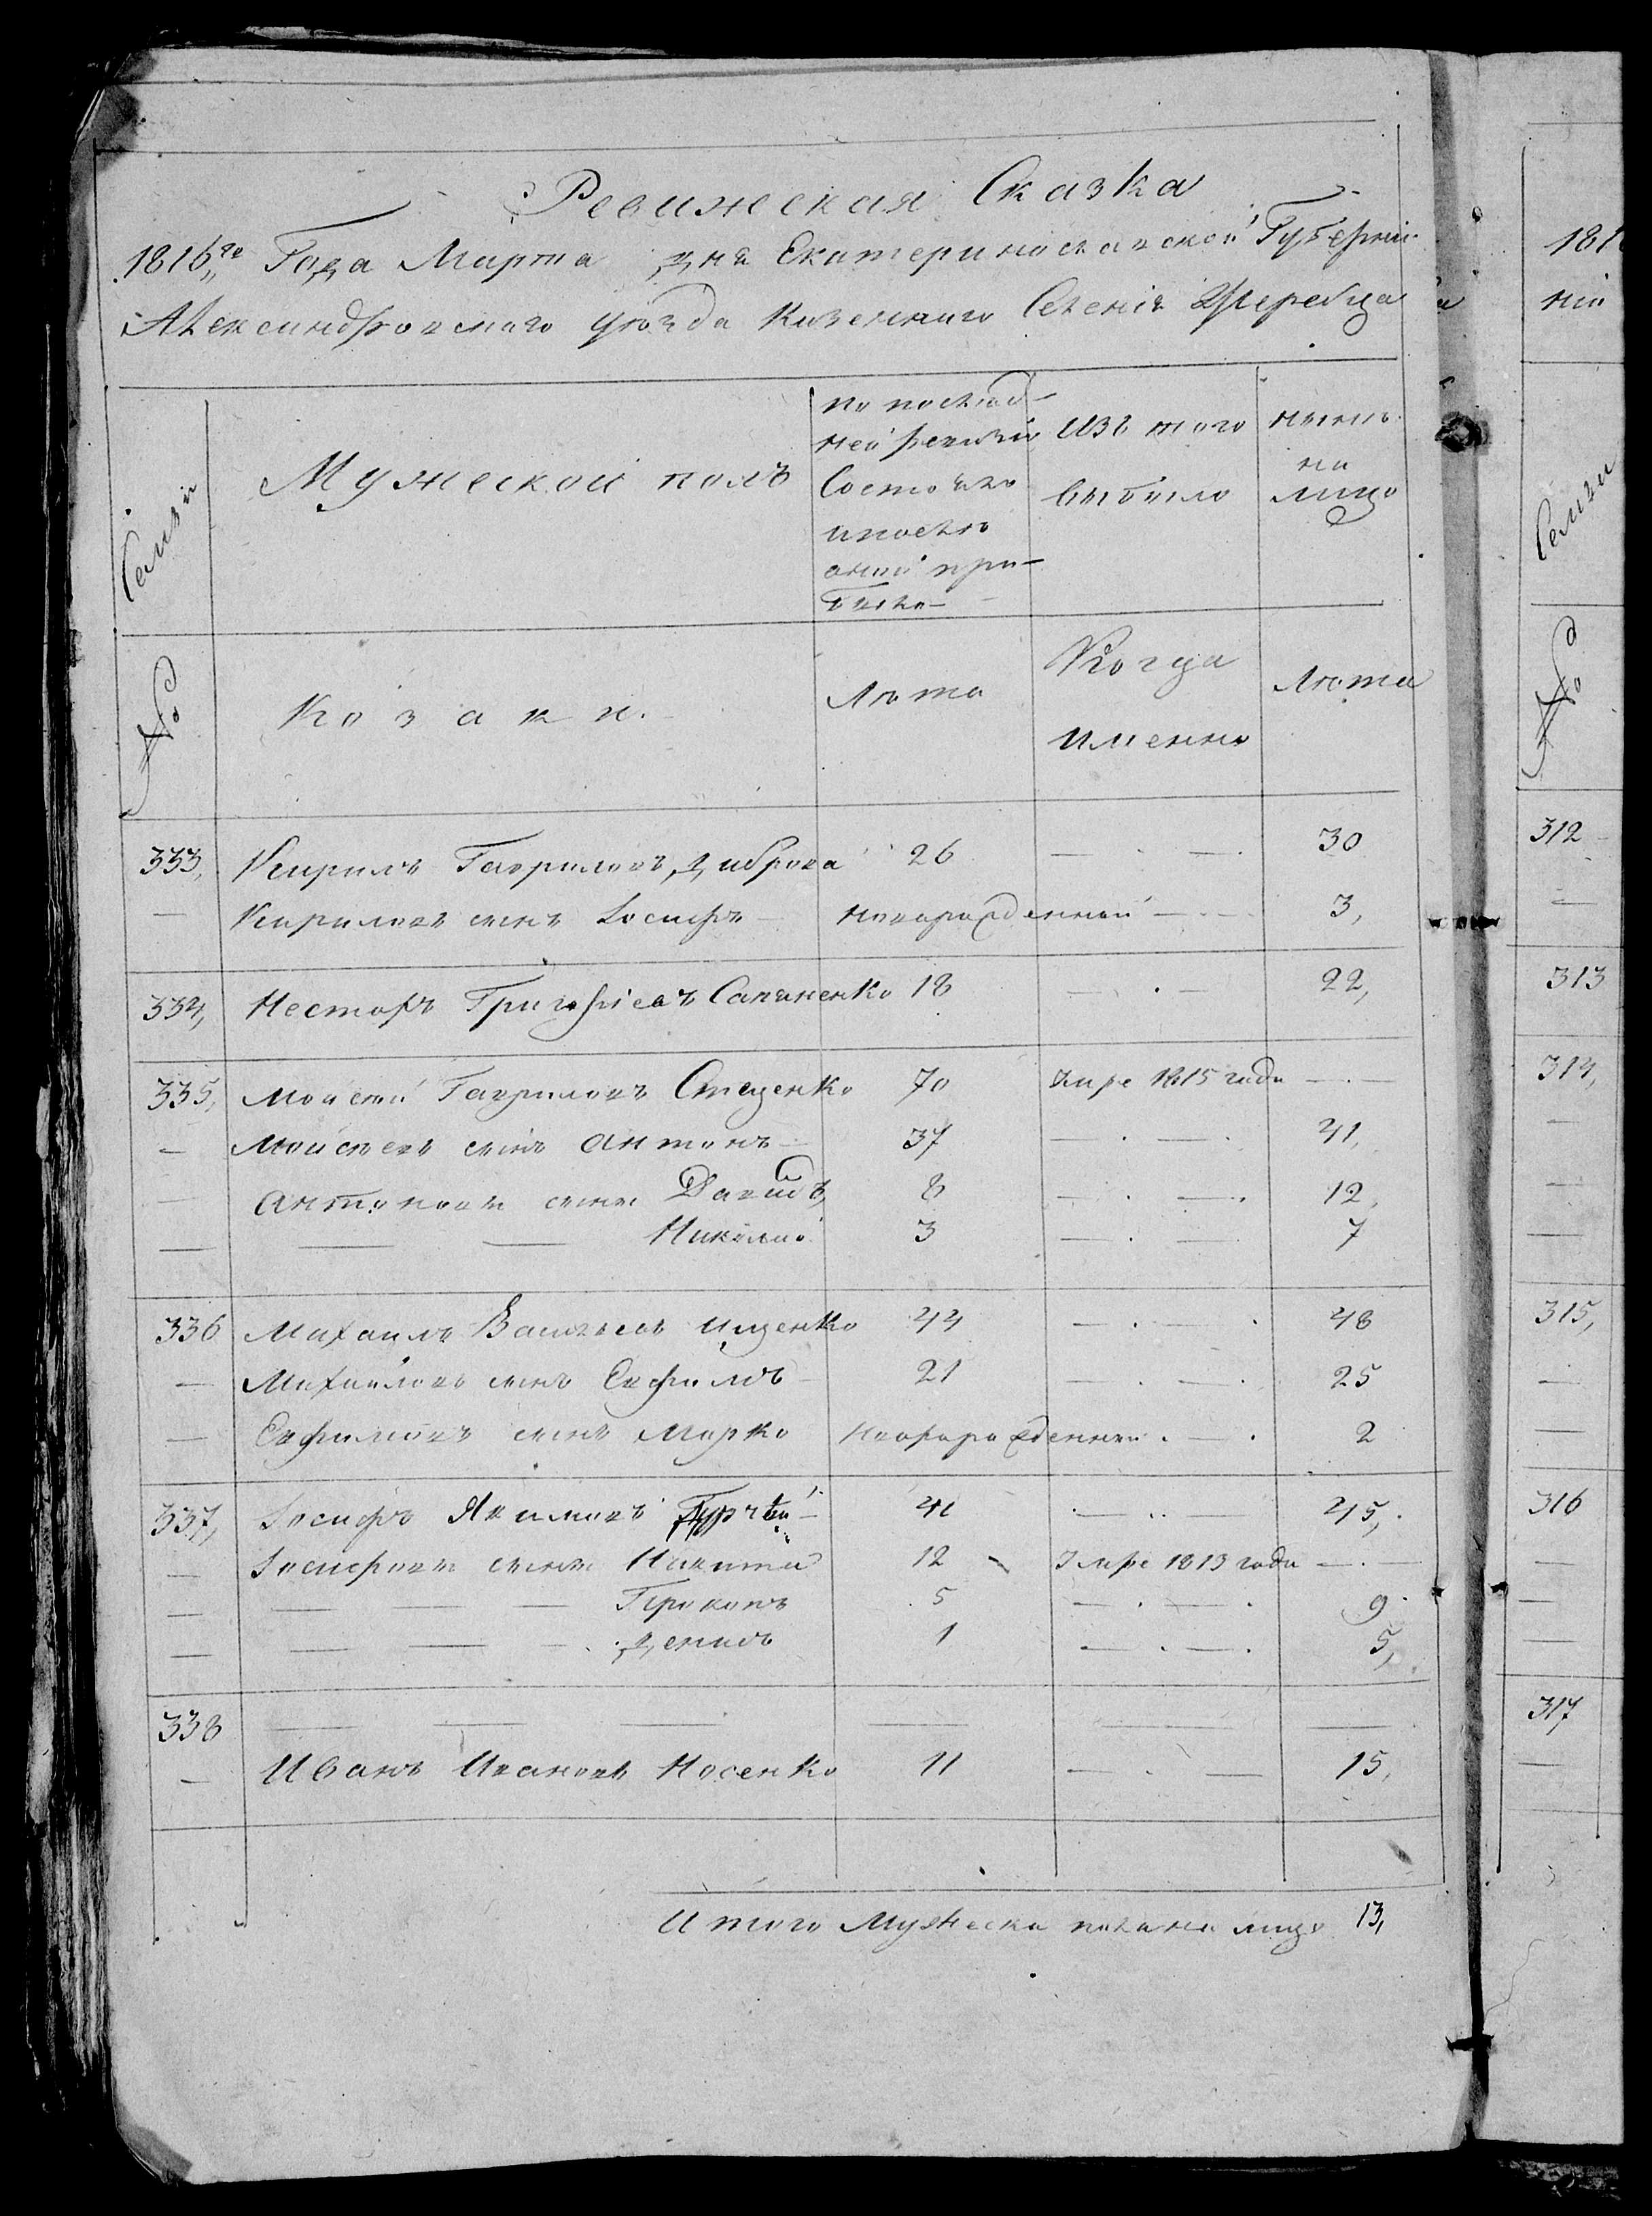 Ревижеская Сказка
1816го Года Марта дня Екатеринославской Губерніи
Александровского уѣзда Казенного Селенія Жеребца
Ревизіи
Мужеской полъ
по послѣд-
ней ревизіи
Состояло
и послѣ
оной при-
было
Изъ того
выбыло
нынѣ
на
лицо
№
Козаки.
Лѣта
Когда
именно
Лѣта
333, Кирилъ Гавриловъ Диброва 26 — . — . 30
— Кириловъ сынъ Іосифъ — новорожденный — . — 3,
334, Несторъ Григорьевъ Сапаненко 18 — . — 22,
335, Мойсей Гавриловъ Стеценко 70 Умре 1815 года — . —
— Мойсѣевъ сынъ Антонъ — 37 — . — . 41,
— Антоновы сыны Давидъ, 8 — . — . 12,
— — — Николай 3 — . — 7
336 Михаилъ Васильевъ Ищенко 44 — . — . 48
— Михайловъ сынъ Евфимъ — 21 — . — . 25
— Евфимовъ сынъ Марко Новорожденный . — . 2
337, Іосифъ Якимовъ 41 — .. — 45,
— Іосифовы сыны Никита 12 Умре 1813 года — . —
— — — — Прокопъ 5 — . — . 9
— — — — Денисъ 1 — . — . 5,
338 — — — — — —
— Иванъ Ивановъ Носенко 11 — . — 15,
Итого Мужеска пола на лицо 13,
181
нія
Ревизіи
№
312
—
313
314,
—
—
—
315,
—
—
316
—
—
—
317
—